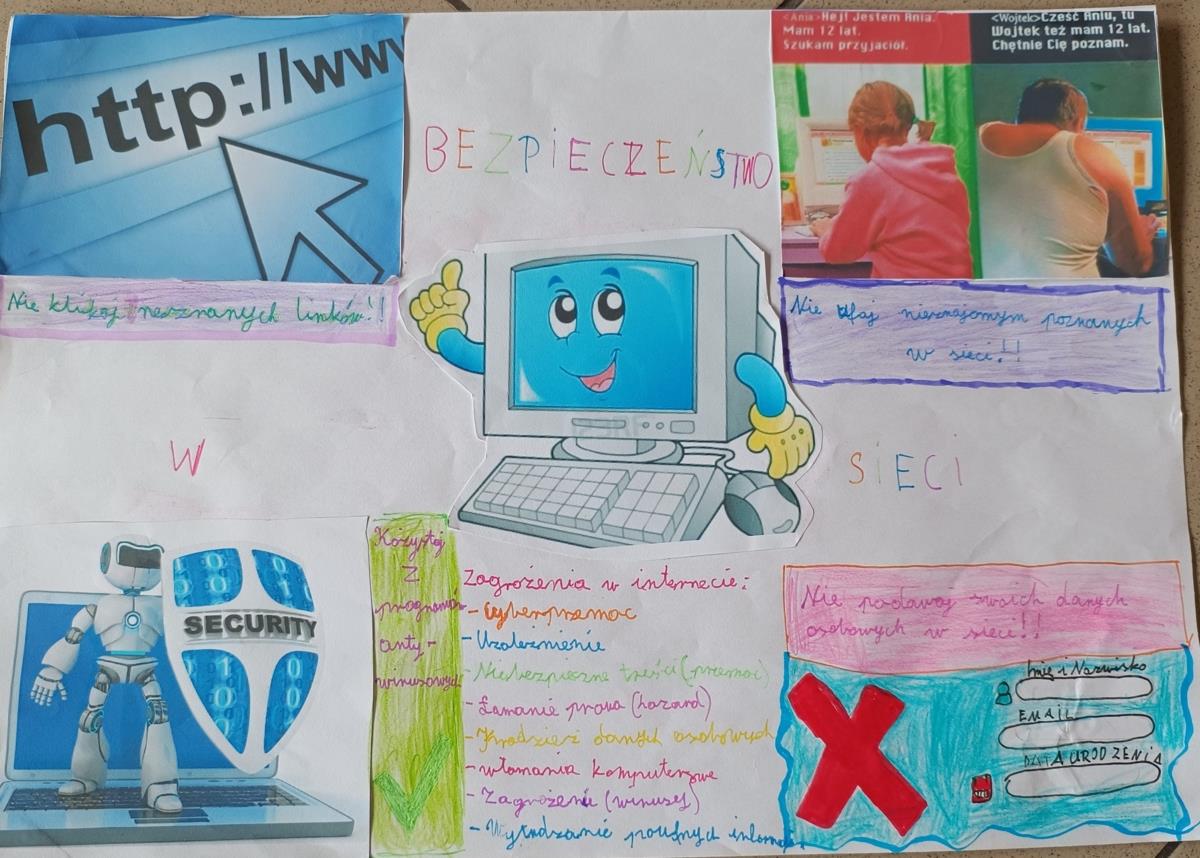 http://ww
BEZPIECZEŃSTWO
<Ania>Hej! Jestem Ania.
Mam 12 lat.
Szukam przyjaciół.
<Wojtek>Cześć Aniu, tu
Wojtek też mam 12 lat.
Chętnie Cię poznam.
Nie klikaj nieznanych linków!!
Nie ufaj nieznajomym poznanych
w sieci!!
W
SIECI
SECURITY
Kożystaj
z
programów
anty-
wirusowych
Zagrożenia w internecie:
- Cyberprzemoc
- Uzależnienie
- Niebezpieczne treści (przemoc)
- Łamanie prawa (hazard)
- Kradzież danych osobowych
- włamania komputerowe
- Zagrożenie (wirusy)
- Wyłudzanie poufnych informacji
Nie podawaj swoich danych
osobowych w sieci!!
Imię i Nazwisko
EMAIL
DATA URODZENIA